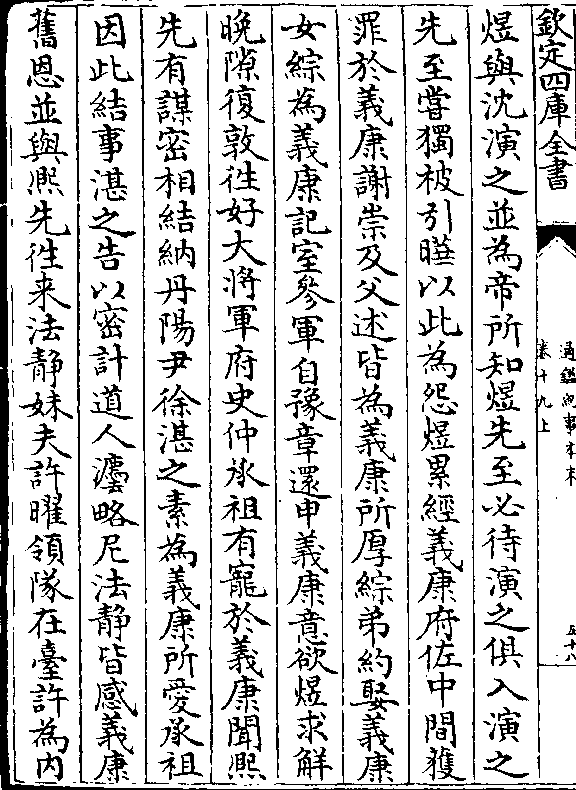 欽定四庫全書
通鑑紀事本末
卷十九上
五十八
煜與沈演之並為帝所知煜先至必待演之俱入演之
先至嘗獨被引曄以此為怨煜累經義康府佐中間獲
罪於義康謝崇及父述皆為義康所厚綜弟約娶義康
女綜為義康記室參軍自豫章還申義康意欲煜求解
晚隙復敦徃好大將軍府史仲承祖有寵於義康聞熈
先有謀密相結納丹陽尹徐湛之素為義康所愛承祖
因此結事湛之告以密計道人灋略尼法静皆感義康
舊恩並與熈先徃来法静妹夫許曜領隊在臺許為内